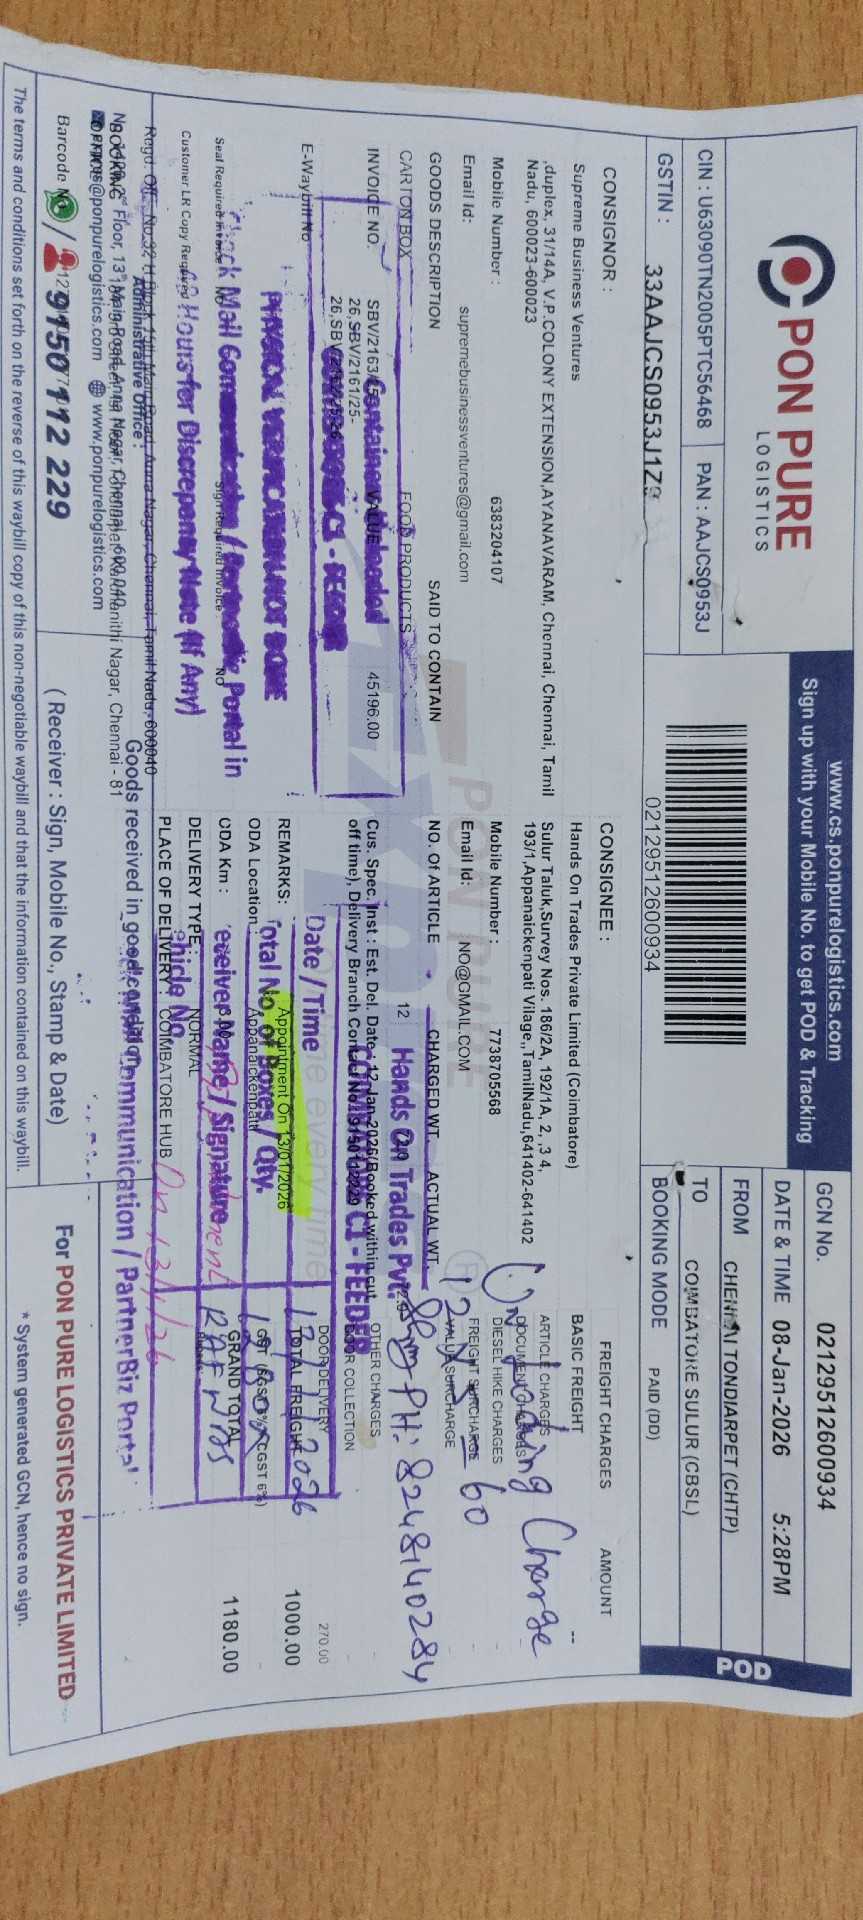 PON PURE
LOGISTICS
www.cs.ponpurelogistics.com
Sign up with your Mobile No. to get POD & Tracking
POD
CIN : U63090TN2005PTC56468 PAN : AAJCS0953J
GSTIN : 33AAJCS0953J1Z9
02129512600934
GCN No. 02129512600934
DATE & TIME 08-Jan-2026 5:28PM
FROM CHENNAI TONDIARPET (CHTP)
TO COIMBATORE SULUR (CBSL)
BOOKING MODE PAID (DD)
CONSIGNOR :
Supreme Business Ventures
,duplex, 31/14A, V.P.COLONY EXTENSION,AYANAVARAM, Chennai, Chennai, Tamil
Nadu, 600023-600023
Mobile Number : 6383204107
Email Id: supremebusinessventures@gmail.com
CONSIGNEE :
Hands On Trades Private Limited (Coimbatore)
Sulur Taluk,Survey Nos. 186/2A, 192/1A, 2, ,3 4,
193/1,Appanaickenpati Vilage,,TamilNadu,641402-641402
Mobile Number : 7738705568
Email Id: NO@GMAIL.COM
FREIGHT CHARGES AMOUNT
BASIC FREIGHT --
ARTICLE CHARGES
DOCUMENT CHARGES
DIESEL HIKE CHARGES -
FREIGHT SURCHARGE -
VALUE SURCHARGE -
OTHER CHARGES -
DOOR COLLECTION -
DOOR DELIVERY 270.00
TOTAL FREIGHT 1000.00
GST (SGST 6% CGST 6%) -
GRAND TOTAL 1180.00
Unloading Charge
12 X 5 = 60
PH: 8248140284
GOODS DESCRIPTION SAID TO CONTAIN NO. Of ARTICLE CHARGED WT. ACTUAL WT.
CARTON BOX FOOD PRODUCTS 12
Hands On Trades Pvt.
INVOICE NO. VALUE 45196.00
26,SBV/2161/25-
Container Unloaded
E-Waybill No
Cus. Spec. Inst : Est. Del. Date : 12-Jan-2026(Booked within cut
off time), Delivery Branch Cont
C1 - FEEDER
REMARKS: Appointment On 13/01/2026
ODA Location : Appanaickenpatti
ODA Km :
DELIVERY TYPE : NORMAL
PLACE OF DELIVERY : COIMBATORE HUB
Date / Time 13/1/2026
Total No. of Boxes / Qty.
Receiver Name / Signature
Vehicle No.
On 13/1/26
PHYSICAL VERIFICATION NOT DONE
Check Mail Communication / Partnerbiz Portal in
Hours for Discrepancy Note (If Any)
Seal Required Invoice No
Sign Required Invoice : No
Customer LR Copy Required
Administrative Office :
www.ponpurelogistics.com
Barcode No
9150 112 229
Goods received in good condition
Mail Communication / PartnerBiz Portal
( Receiver : Sign, Mobile No., Stamp & Date)
For PON PURE LOGISTICS PRIVATE LIMITED
* System generated GCN, hence no sign.
The terms and conditions set forth on the reverse of this waybill copy of this non-negotiable waybill and that the information contained on this waybill.